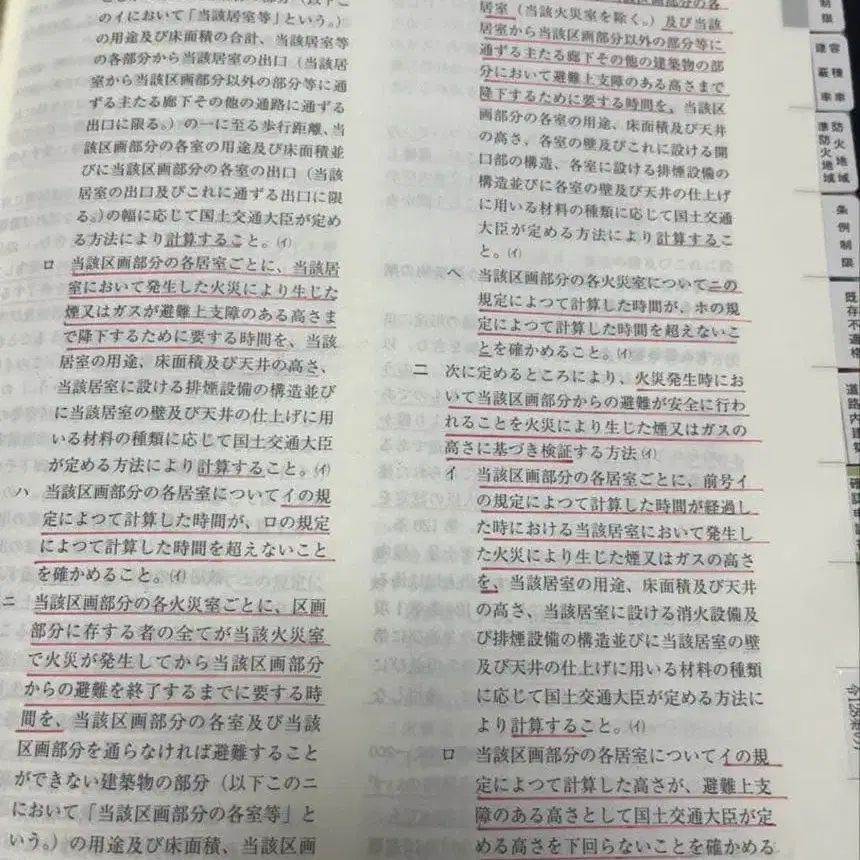 のイにおいて「当該居室等」という。）
の用途及び床面積の合計、当該居室等
の各部分から当該居室の出口（当該居
室から当該区画部分以外の部分等に通
ずる主たる廊下その他の通路に通ずる
出口に限る。）の一に至る歩行距離、当
該区画部分の各室の用途及び床面積並
びに当該区画部分の各室の出口（当該
居室の出口及びこれに通ずる出口に限
る。）の幅に応じて国土交通大臣が定め
る方法により計算すること。（イ）
ロ　当該区画部分の各居室ごとに、当該居
室において発生した火災により生じた
煙又はガスが避難上支障のある高さま
で降下するために要する時間を、当該
居室の用途、床面積及び天井の高さ、
当該居室に設ける排煙設備の構造並び
に当該居室の壁及び天井の仕上げに用
いる材料の種類に応じて国土交通大臣
が定める方法により計算すること。（イ）
ハ　当該区画部分の各居室についてイの規
定によつて計算した時間が、ロの規定
によつて計算した時間を超えないこと
を確かめること。（イ）
ニ　当該区画部分の各火災室ごとに、区画
部分に存する者の全てが当該火災室
で火災が発生してから当該区画部分
からの避難を終了するまでに要する時
間を、当該区画部分の各室及び当該
区画部分を通らなければ避難すること
ができない建築物の部分（以下このニ
において「当該区画部分の各室等」と
いう。）の用途及び床面積、当該区画
居室（当該火災室を除く。）及び当該
居室から当該区画部分以外の部分等に
通ずる主たる廊下その他の建築物の部
分において避難上支障のある高さまで
降下するために要する時間を、当該区
画部分の各室の用途、床面積及び天井
の高さ、各室の壁及びこれに設ける開
口部の構造、各室に設ける排煙設備の
構造並びに各室の壁及び天井の仕上げ
に用いる材料の種類に応じて国土交通
大臣が定める方法により計算するこ
と。（イ）
ヘ　当該区画部分の各火災室についてニの
規定によつて計算した時間が、ホの規
定によつて計算した時間を超えないこ
とを確かめること。（イ）
二　次に定めるところにより、火災発生時にお
いて当該区画部分からの避難が安全に行わ
れることを火災により生じた煙又はガスの
高さに基づき検証する方法（イ）
イ　当該区画部分の各居室ごとに、前号イ
の規定によつて計算した時間が経過し
た時における当該居室において発生し
た火災により生じた煙又はガスの高さ
を、当該居室の用途、床面積及び天井
の高さ、当該居室に設ける消火設備及
び排煙設備の構造並びに当該居室の壁
及び天井の仕上げに用いる材料の種類
に応じて国土交通大臣が定める方法に
より計算すること。（イ）
ロ　当該区画部分の各居室についてイの規
定によつて計算した高さが、避難上支
障のある高さとして国土交通大臣が定
める高さを下回らないことを確かめる
制限
容積率
建蔽率
防火地域
準防火地域
条例制限
既存不適格
道路内建築